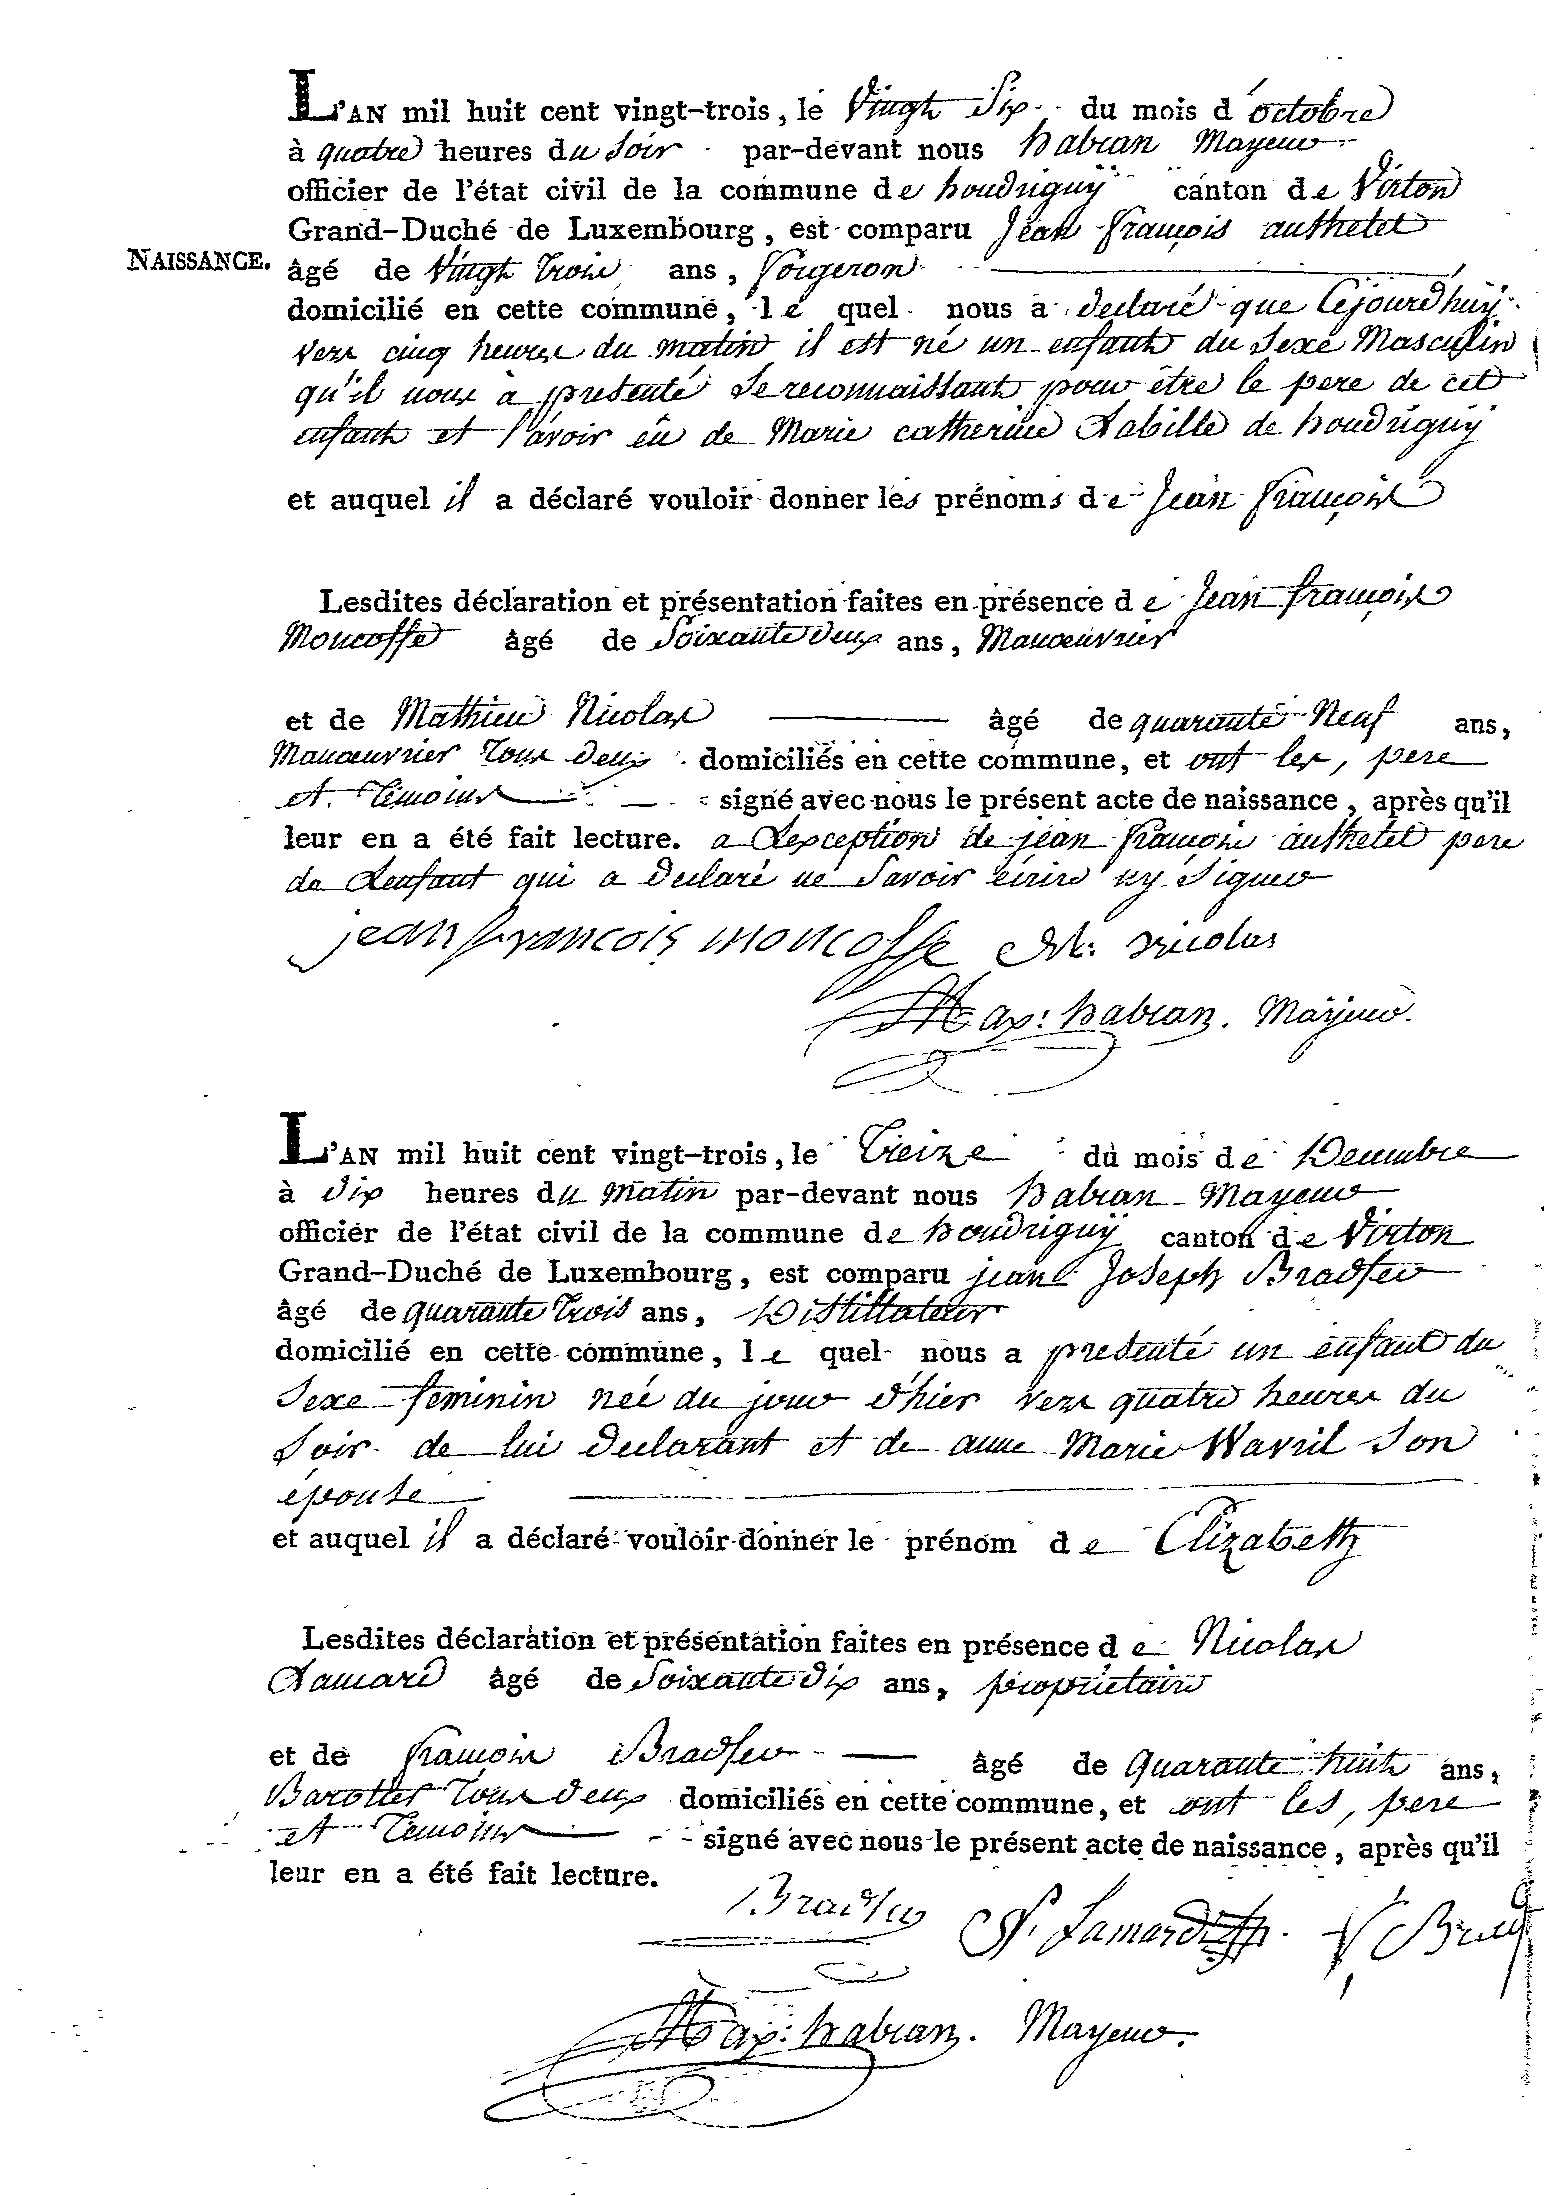 L'AN mil huit cent vingt-trois, le Vingt Six du mois d'octobre
à quatre heures du Soir par-devant nous habran Mayeur
officier de l'état civil de la commune de houdriguÿ canton de Virton
Grand-Duché de Luxembourg, est comparu Jean françois authelet
NAISSANCE. âgé de Vingt Trois ans, forgeron
domicilié en cette commune, le quel nous a declaré que Cejourdhuÿ
vers cinq heures du matin il est né un enfant du Sexe Masculin
qu'il nous à presenté Se reconnaissant pour être le pere de cet
enfant et l'avoir eû de Marie catherine Labille de houdriguÿ
et auquel il a déclaré vouloir donner les prénoms de Jean françois
Lesdites déclaration et présentation faites en présence de Jean françois
Moncoffe âgé de Soixante deux ans, Manœuvrier
et de Mathieu Nicolas âgé de quarante Neuf ans,
Manœuvrier Tous deux domiciliés en cette commune, et ont les, pere
et Temoins signé avec nous le présent acte de naissance, après qu'il
leur en a été fait lecture. a Lexception de jean françois authelet pere
de Lenfant qui a declaré ne Savoir écrire ny Signer
jean francois moncoffe M: nicolas
Max: habran. Mayeur.
L'AN mil huit cent vingt-trois, le Treize du mois de Decembre
à dix heures du matin par-devant nous habran Mayeur
officier de l'état civil de la commune de houdriguÿ canton de Virton
Grand-Duché de Luxembourg, est comparu jean Joseph Bradfer
âgé de quarante Trois ans, Distillateur
domicilié en cette commune, le quel nous a presenté un enfant du
Sexe feminin née du jour d'hier vers quatre heures du
Soir de lui declarant et de anne Marie Wavril Son
épouse
et auquel il a déclaré vouloir donner le prénom de Elizabeth
Lesdites déclaration et présentation faites en présence de Nicolas
Lamard âgé de Soixante dix ans, propriétaire
et de françois Bradfer âgé de Quarante huit ans,
Barottier Tous deux domiciliés en cette commune, et ont les, pere
et Temoins signé avec nous le présent acte de naissance, après qu'il
leur en a été fait lecture.
Bradfer N. Lamard
Max: habran. Mayeur.